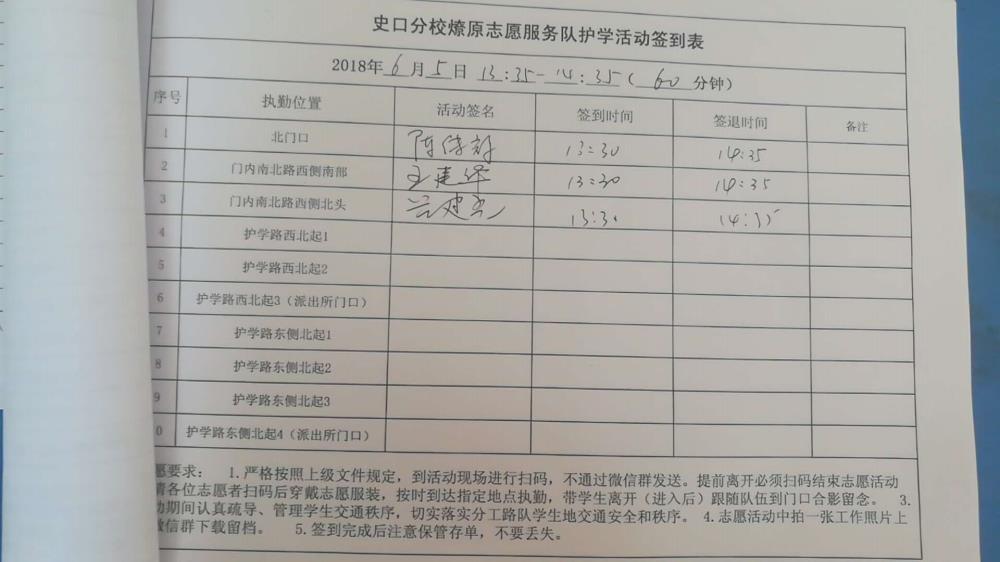 史口分校燎原志愿服务队护学活动签到表
2018年6月5日 13:35-14:35(60分钟)
序号 执勤位置 活动签名 签到时间 签退时间 备注
1 北门口 13:30 14:35
2 门内南北路西侧南部 王建华 13:30 14:35
3 门内南北路西侧北头 13:30 14:35
4 护学路西北起1
5 护学路西北起2
6 护学路西北起3（派出所门口）
7 护学路东侧北起1
8 护学路东侧北起2
9 护学路东侧北起3
0 护学路东侧北起4（派出所门口）
愿要求： 1.严格按照上级文件规定，到活动现场进行扫码，不通过微信群发送。提前离开必须扫码结束志愿活动
请各位志愿者扫码后穿戴志愿服装，按时到达指定地点执勤，带学生离开（进入后）跟随队伍到门口合影留念。 3.
动期间认真疏导、管理学生交通秩序，切实落实分工路队学生地交通安全和秩序。 4.志愿活动中拍一张工作照片上
微信群下载留档。 5.签到完成后注意保管存单，不要丢失。